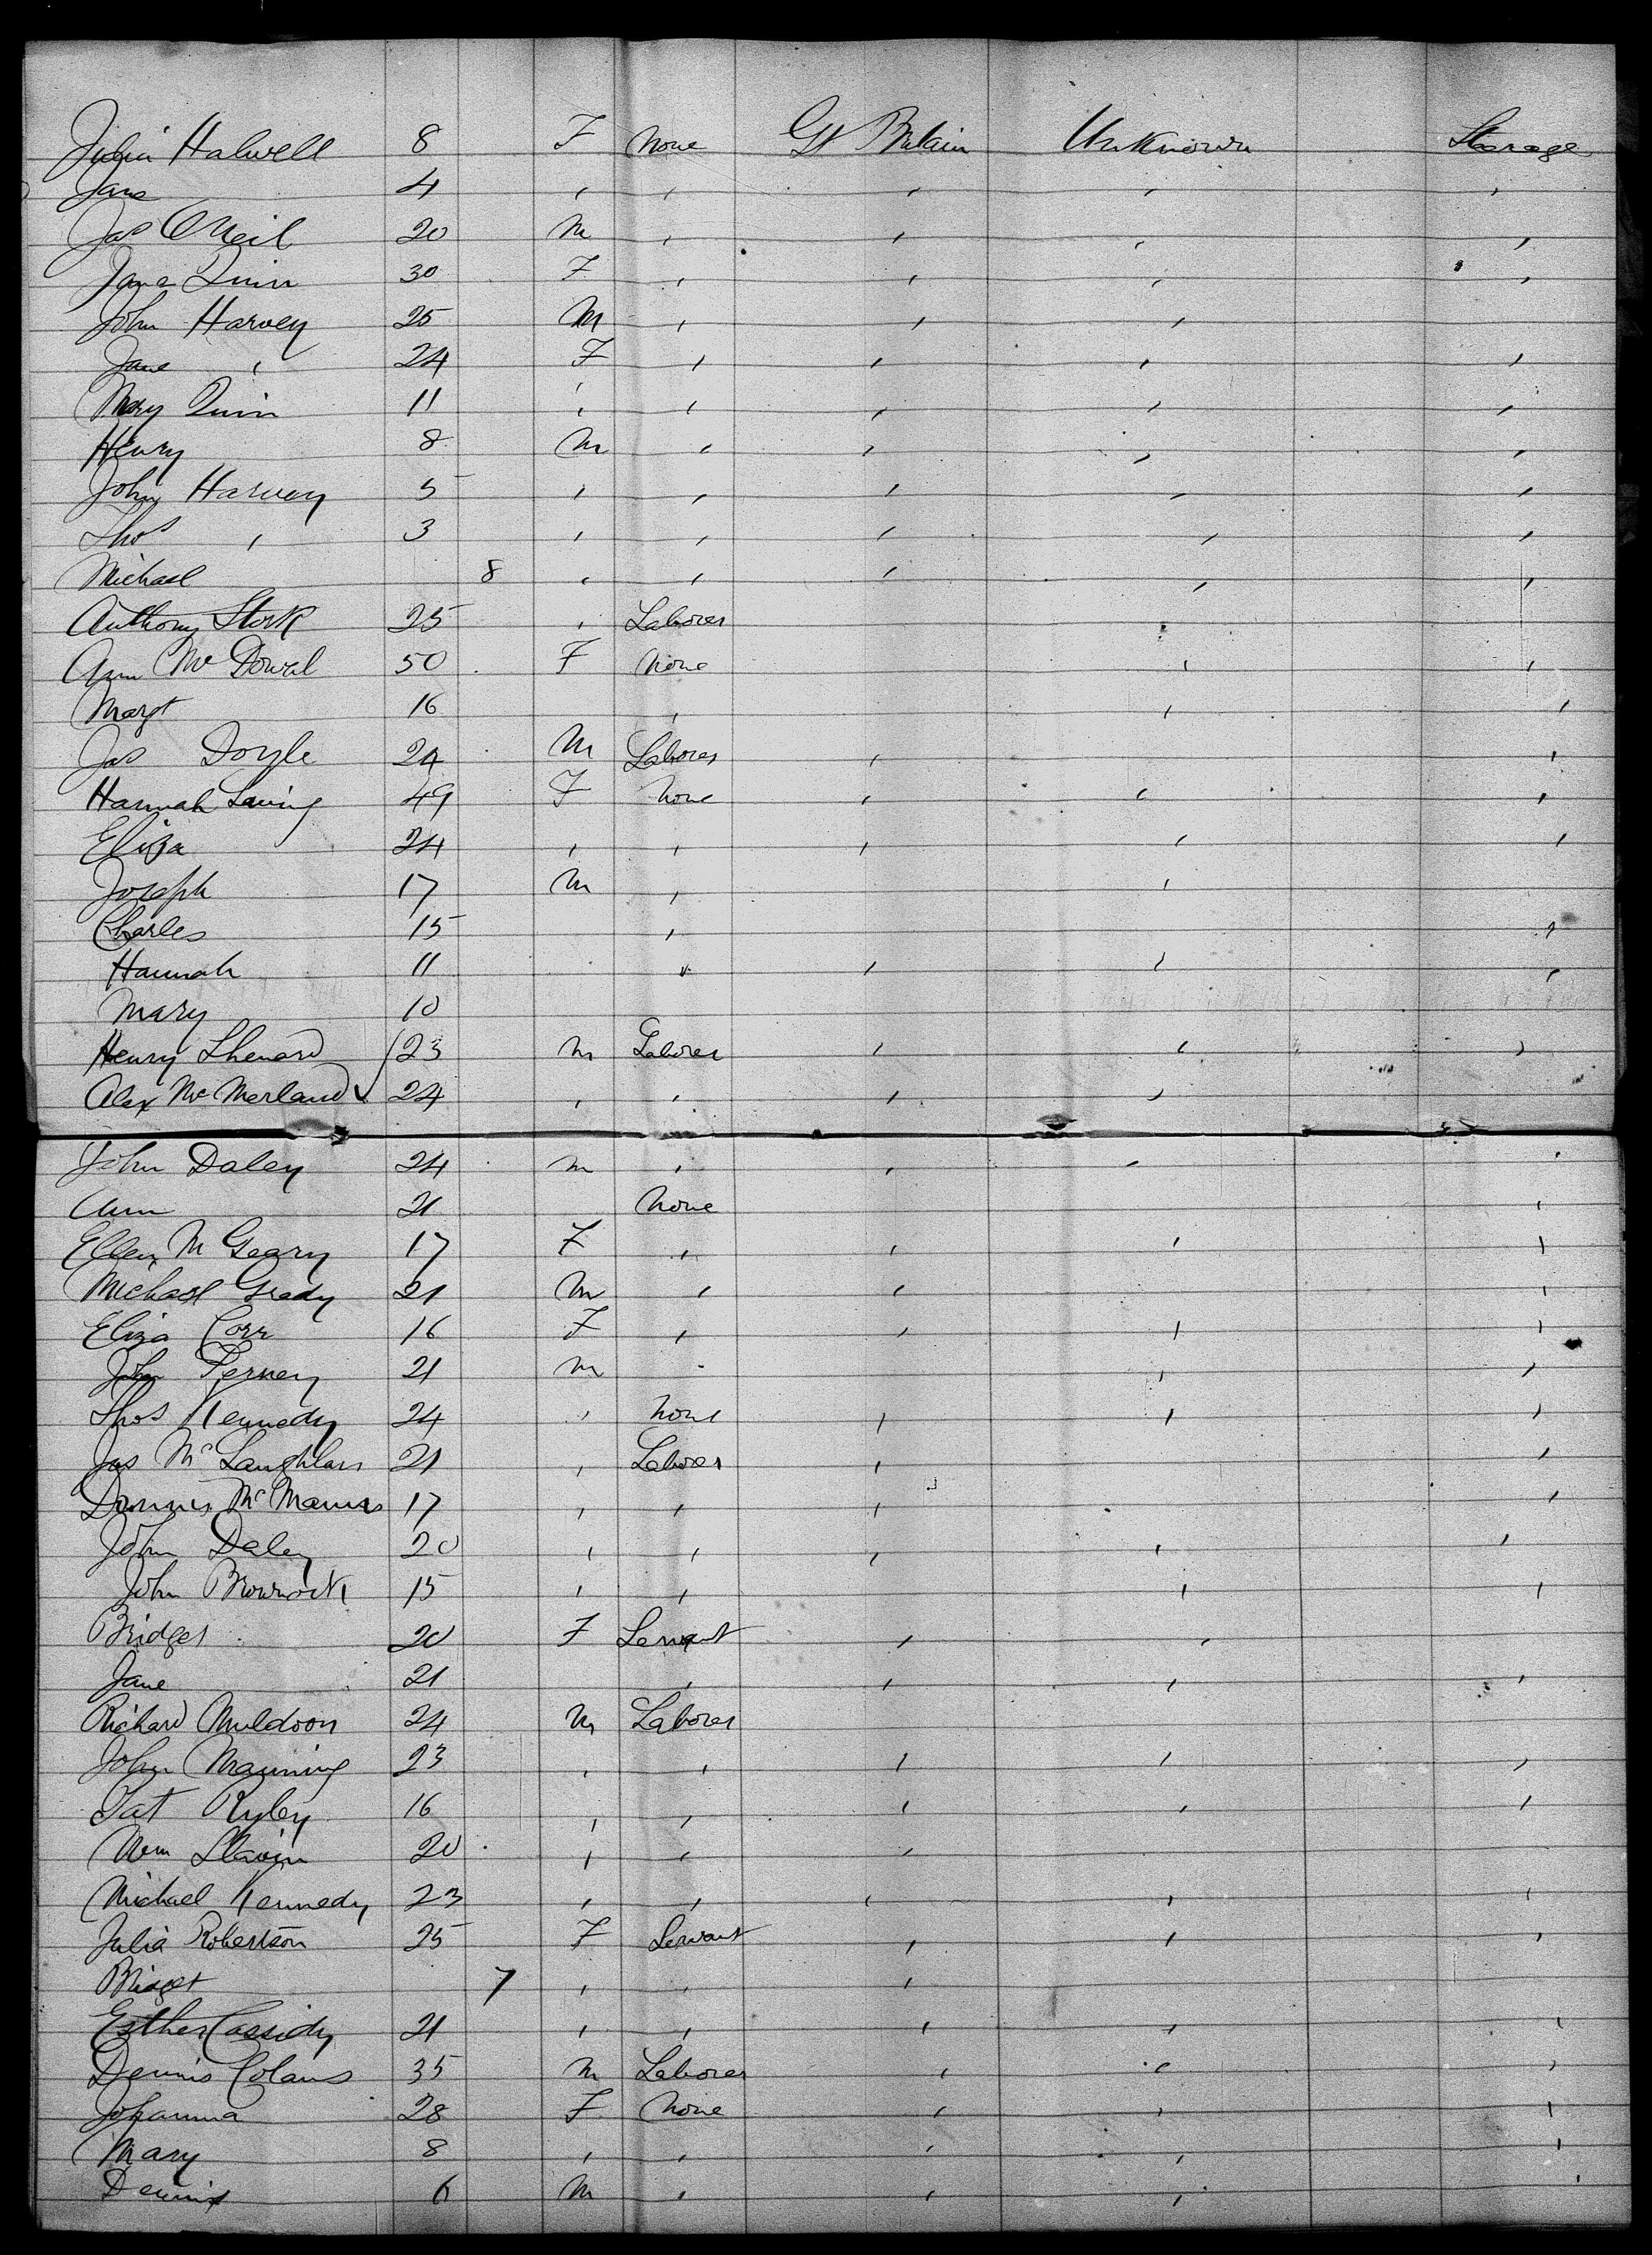 Julia Halwell 8 F None Gt Britain Unknown Starage
Jane 4 " " " " "
Jas O'Neil 20 M " " " "
Jane Quin 30 F " " " "
John Harvey 25 M " " "
Jane " 24 F " " " "
Mary Quin 11 " " " " "
Henry 8 M " " " "
John Harvey 5 " " " " "
Thos " 3 " " " " "
Michael 8 " " " " "
Anthony Stork 25 " Laborer
Ann Mc Dowel 50 F None " "
Margt 16 " " "
Jas Doyle 24 M Laborer " "
Hannah Laving 49 F None " " "
Eliza 24 " " " " "
Joseph 17 M " "
Charles 15 " "
Hannah 11 " " " "
Mary 10
Henry Shenard 23 M Laborer " " "
Alex Mc Merland 24 " " " "
John Daley 24 M " " " "
Ann 21 None "
Ellen M Geary 17 F " " " "
Michael Grady 21 M " " "
Eliza Corr 16 F " " " "
John Perney 21 M " " "
Thos Kennedy 24 " None " " "
Jas Mc Laughlan 21 " Laborer " "
Dennis Mc Manus 17 " " " "
John Daley 20 " " " " "
John 15 " " " "
Bridget 20 F Servant " "
Jane 21 " " " "
Richard Muldoon 24 M Laborer
John Manning 23 " " " " "
Pat Ryley 16 " " " " "
Wm Slavin 20 " " "
Michael Kennedy 23 " " " " "
Julia Robertson 25 F Servant " " "
Bridget 7 " " "
Esther Cassidy 21 " " " " "
Dennis Colans 35 M Laborer " " "
Johanna 28 F None " " "
Mary 8 " " " " "
Dennis 6 M " " " "